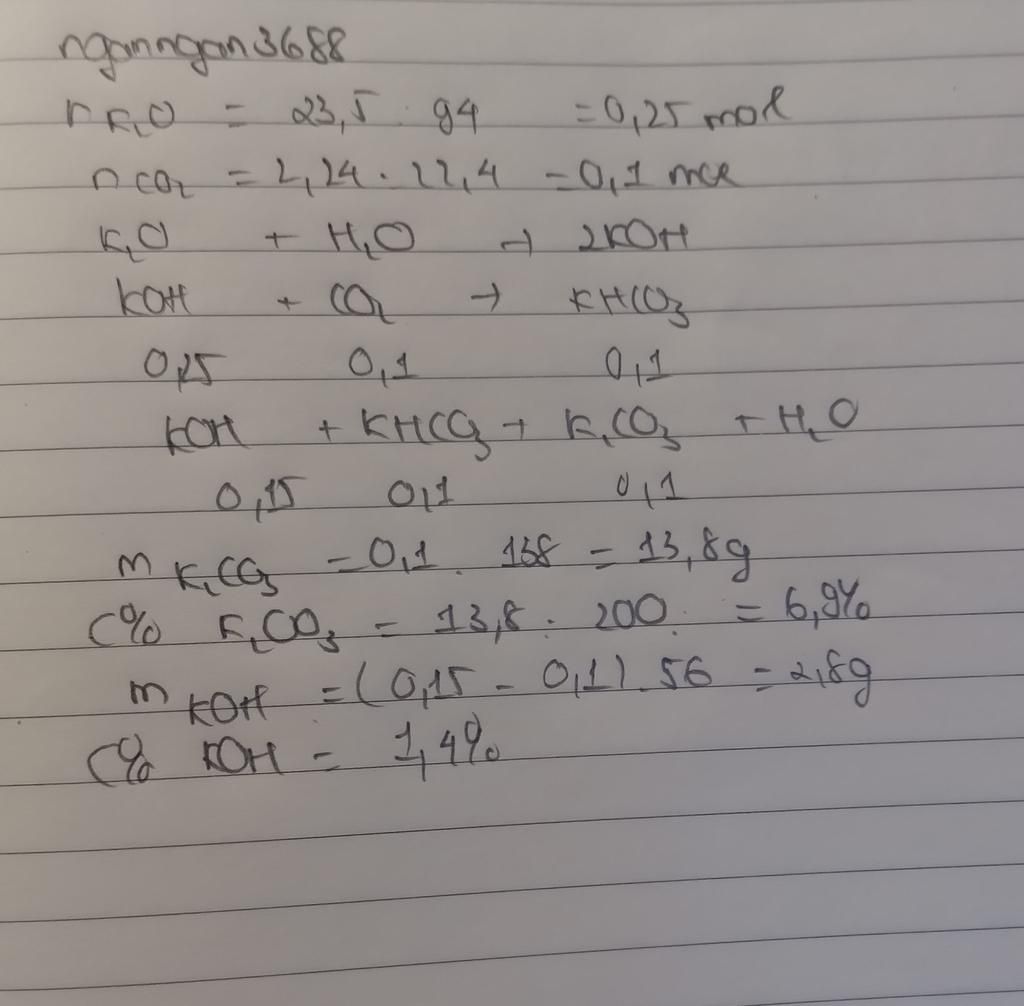 nganngan3688
n K₂O = 23,5 : 94 = 0,25 mol
n CO₂ = 2,24 : 22,4 = 0,1 mol
K₂O + H₂O → 2KOH
KOH + CO₂ → KHCO₃
0,25 0,1 0,1
KOH + KHCO₃ → K₂CO₃ + H₂O
0,15 0,1 0,1
m K₂CO₃ = 0,1 . 138 = 13,8g
C% K₂CO₃ = 13,8 : 200 = 6,9%
m KOH = (0,15 - 0,1) . 56 = 2,8g
C% KOH = 1,4%